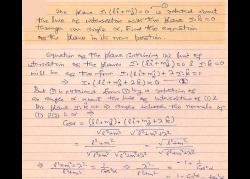 The plane r.(lî+mĵ) = 0 is rotated about
the line of intersection with the plane r.k̂=0
through an angle α. Find the equation
of the plane in its new position.
Equation of the plane containing line of
intersection of the planes r.(lî+mĵ)=0 & r.k̂=0
will be of the form r.(lî+mĵ)+λ r.k̂=0
⇒ r.(lî+mĵ+λk̂)=0
But (2) is obtained from (1) by a rotation of
an angle α about the line of intersection of (1) &
the plane r.k̂=0 ⇒ angle between the normals of
(1) & (2) is α ⇒
Cosα = (lî+mĵ).(lî+mĵ+λk̂)
√l²+m² √l²+m²+λ²
= l²+m² = √l²+m²
√l²+m² √l²+m²+λ² √l²+m²+λ²